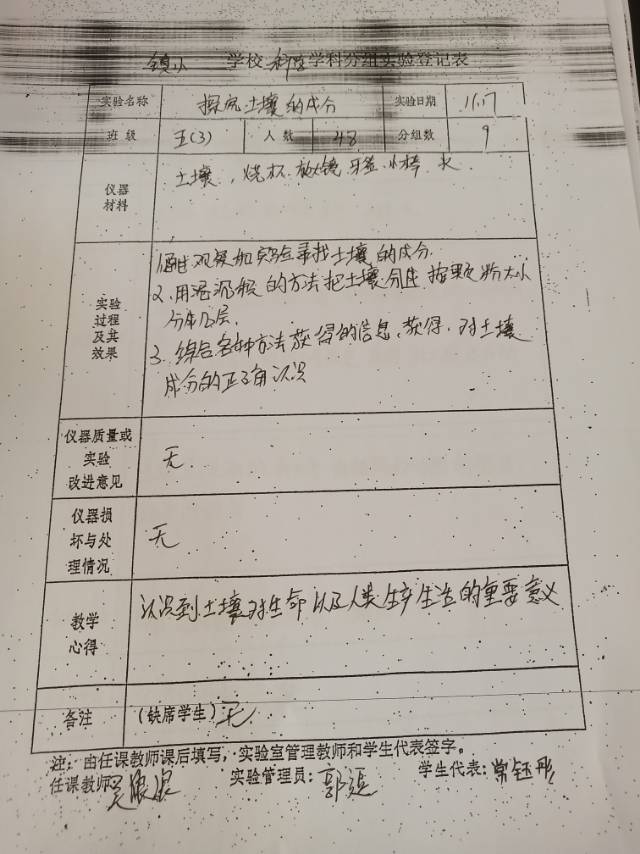 镇小 学校 科学 学科分组实验登记表
实验名称 探究土壤的成分 实验日期 11.17
班级 五(3) 人数 48 分组数 9
仪器材料 土壤、烧杯、放大镜、牙签、小棒、水
实验过程及其效果
1.通过观察和实验寻找土壤的成分.
2.用沉积的方法把土壤分 按颗粒大小
分成几层.
3.综合各种方法获得的信息,获得,对土壤
成分的正确认识
仪器质量或实验改进意见 无.
仪器损坏与处理情况 无
教学心得 认识到土壤对生命以及人类生产生活的重要意义
备注 (缺席学生) 无
注:由任课教师课后填写,实验室管理教师和学生代表签字。
任课教师: 实验管理员:郭 学生代表:常钰彤